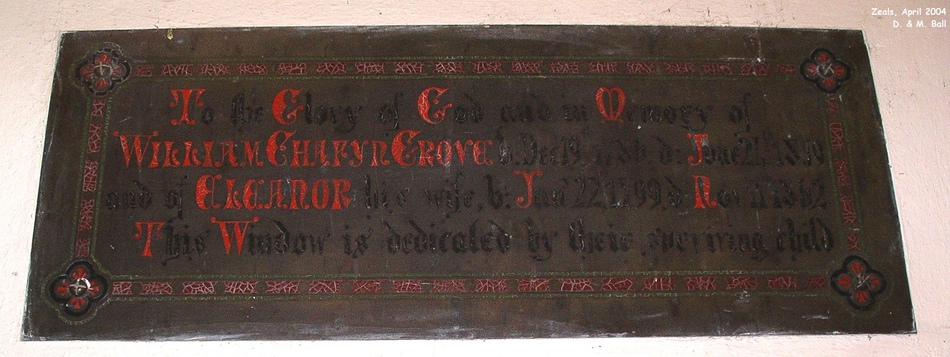 Zeals, April 2004
D. & M. Ball
To the Glory of God and in Memory of
WILLIAM CHAFYN GROVE b. Dec 19 d: June 21
and of ELEANOR his wife, b: Jan 22 1799 d Nov
This Window is dedicated by their surviving child